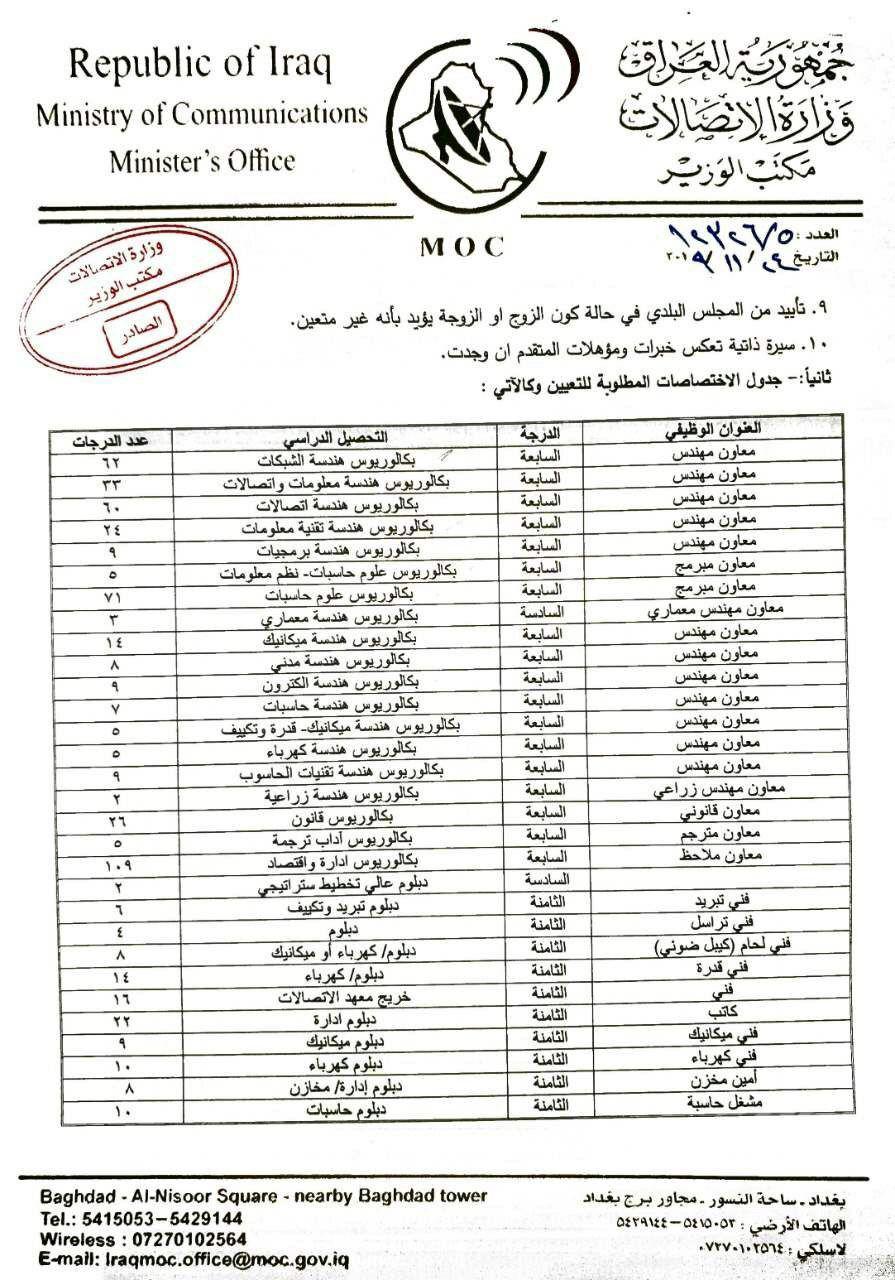 Republic of Iraq
Ministry of Communications
Minister's Office
جمهورية العراق
وزارة الاتصالات
مكتب الوزير
MOC
العدد : ١٢٣٢٦/٥
التاريخ ٢٠١٩/١١/٢٤
وزارة الاتصالات
مكتب الوزير
الصادر
٩. تأييد من المجلس البلدي في حالة كون الزوج او الزوجة يؤيد بأنه غير متعين.
١٠. سيرة ذاتية تعكس خبرات ومؤهلات المتقدم ان وجدت.
ثانياً:- جدول الاختصاصات المطلوبة للتعيين وكالآتي :
العنوان الوظيفي الدرجة التحصيل الدراسي عدد الدرجات
معاون مهندس السابعة بكالوريوس هندسة الشبكات ٦٢
معاون مهندس السابعة بكالوريوس هندسة معلومات واتصالات ٣٣
معاون مهندس السابعة بكالوريوس هندسة اتصالات ٦٠
معاون مهندس السابعة بكالوريوس هندسة تقنية معلومات ٢٤
معاون مهندس السابعة بكالوريوس هندسة برمجيات ٩
معاون مبرمج السابعة بكالوريوس علوم حاسبات- نظم معلومات ٥
معاون مبرمج السابعة بكالوريوس علوم حاسبات ٧١
معاون مهندس معماري السادسة بكالوريوس هندسة معماري ٣
معاون مهندس السابعة بكالوريوس هندسة ميكانيك ١٤
معاون مهندس السابعة بكالوريوس هندسة مدني ٨
معاون مهندس السابعة بكالوريوس هندسة الكترون ٩
معاون مهندس السابعة بكالوريوس هندسة حاسبات ٧
معاون مهندس السابعة بكالوريوس هندسة ميكانيك- قدرة وتكييف ٥
معاون مهندس السابعة بكالوريوس هندسة كهرباء ٥
معاون مهندس السابعة بكالوريوس هندسة تقنيات الحاسوب ٩
معاون مهندس زراعي السابعة بكالوريوس هندسة زراعية ٢
معاون قانوني السابعة بكالوريوس قانون ٢٦
معاون مترجم السابعة بكالوريوس آداب ترجمة ٥
معاون ملاحظ السابعة بكالوريوس ادارة واقتصاد ١٠٩
السادسة دبلوم عالي تخطيط ستراتيجي ٢
فني تبريد الثامنة دبلوم تبريد وتكييف ٦
فني تراسل الثامنة دبلوم ٤
فني لحام (كيبل ضوئي) الثامنة دبلوم/ كهرباء أو ميكانيك ٨
فني قدرة الثامنة دبلوم/ كهرباء ١٤
فني الثامنة خريج معهد الاتصالات ١٦
كاتب الثامنة دبلوم ادارة ٢٢
فني ميكانيك الثامنة دبلوم ميكانيك ٩
فني كهرباء الثامنة دبلوم كهرباء ١٠
أمين مخزن الثامنة دبلوم إدارة/ مخازن ٨
مشغل حاسبة الثامنة دبلوم حاسبات ١٠
Baghdad - Al-Nisoor Square - nearby Baghdad tower
Tel.: 5415053–5429144
Wireless : 07270102564
E-mail: Iraqmoc.office@moc.gov.iq
بغداد - ساحة النسور - مجاور برج بغداد
الهاتف الأرضي : ٥٤١٥٠٥٣–٥٤٢٩١٤٤
لاسلكي : ٠٧٢٧٠١٠٢٥٦٤